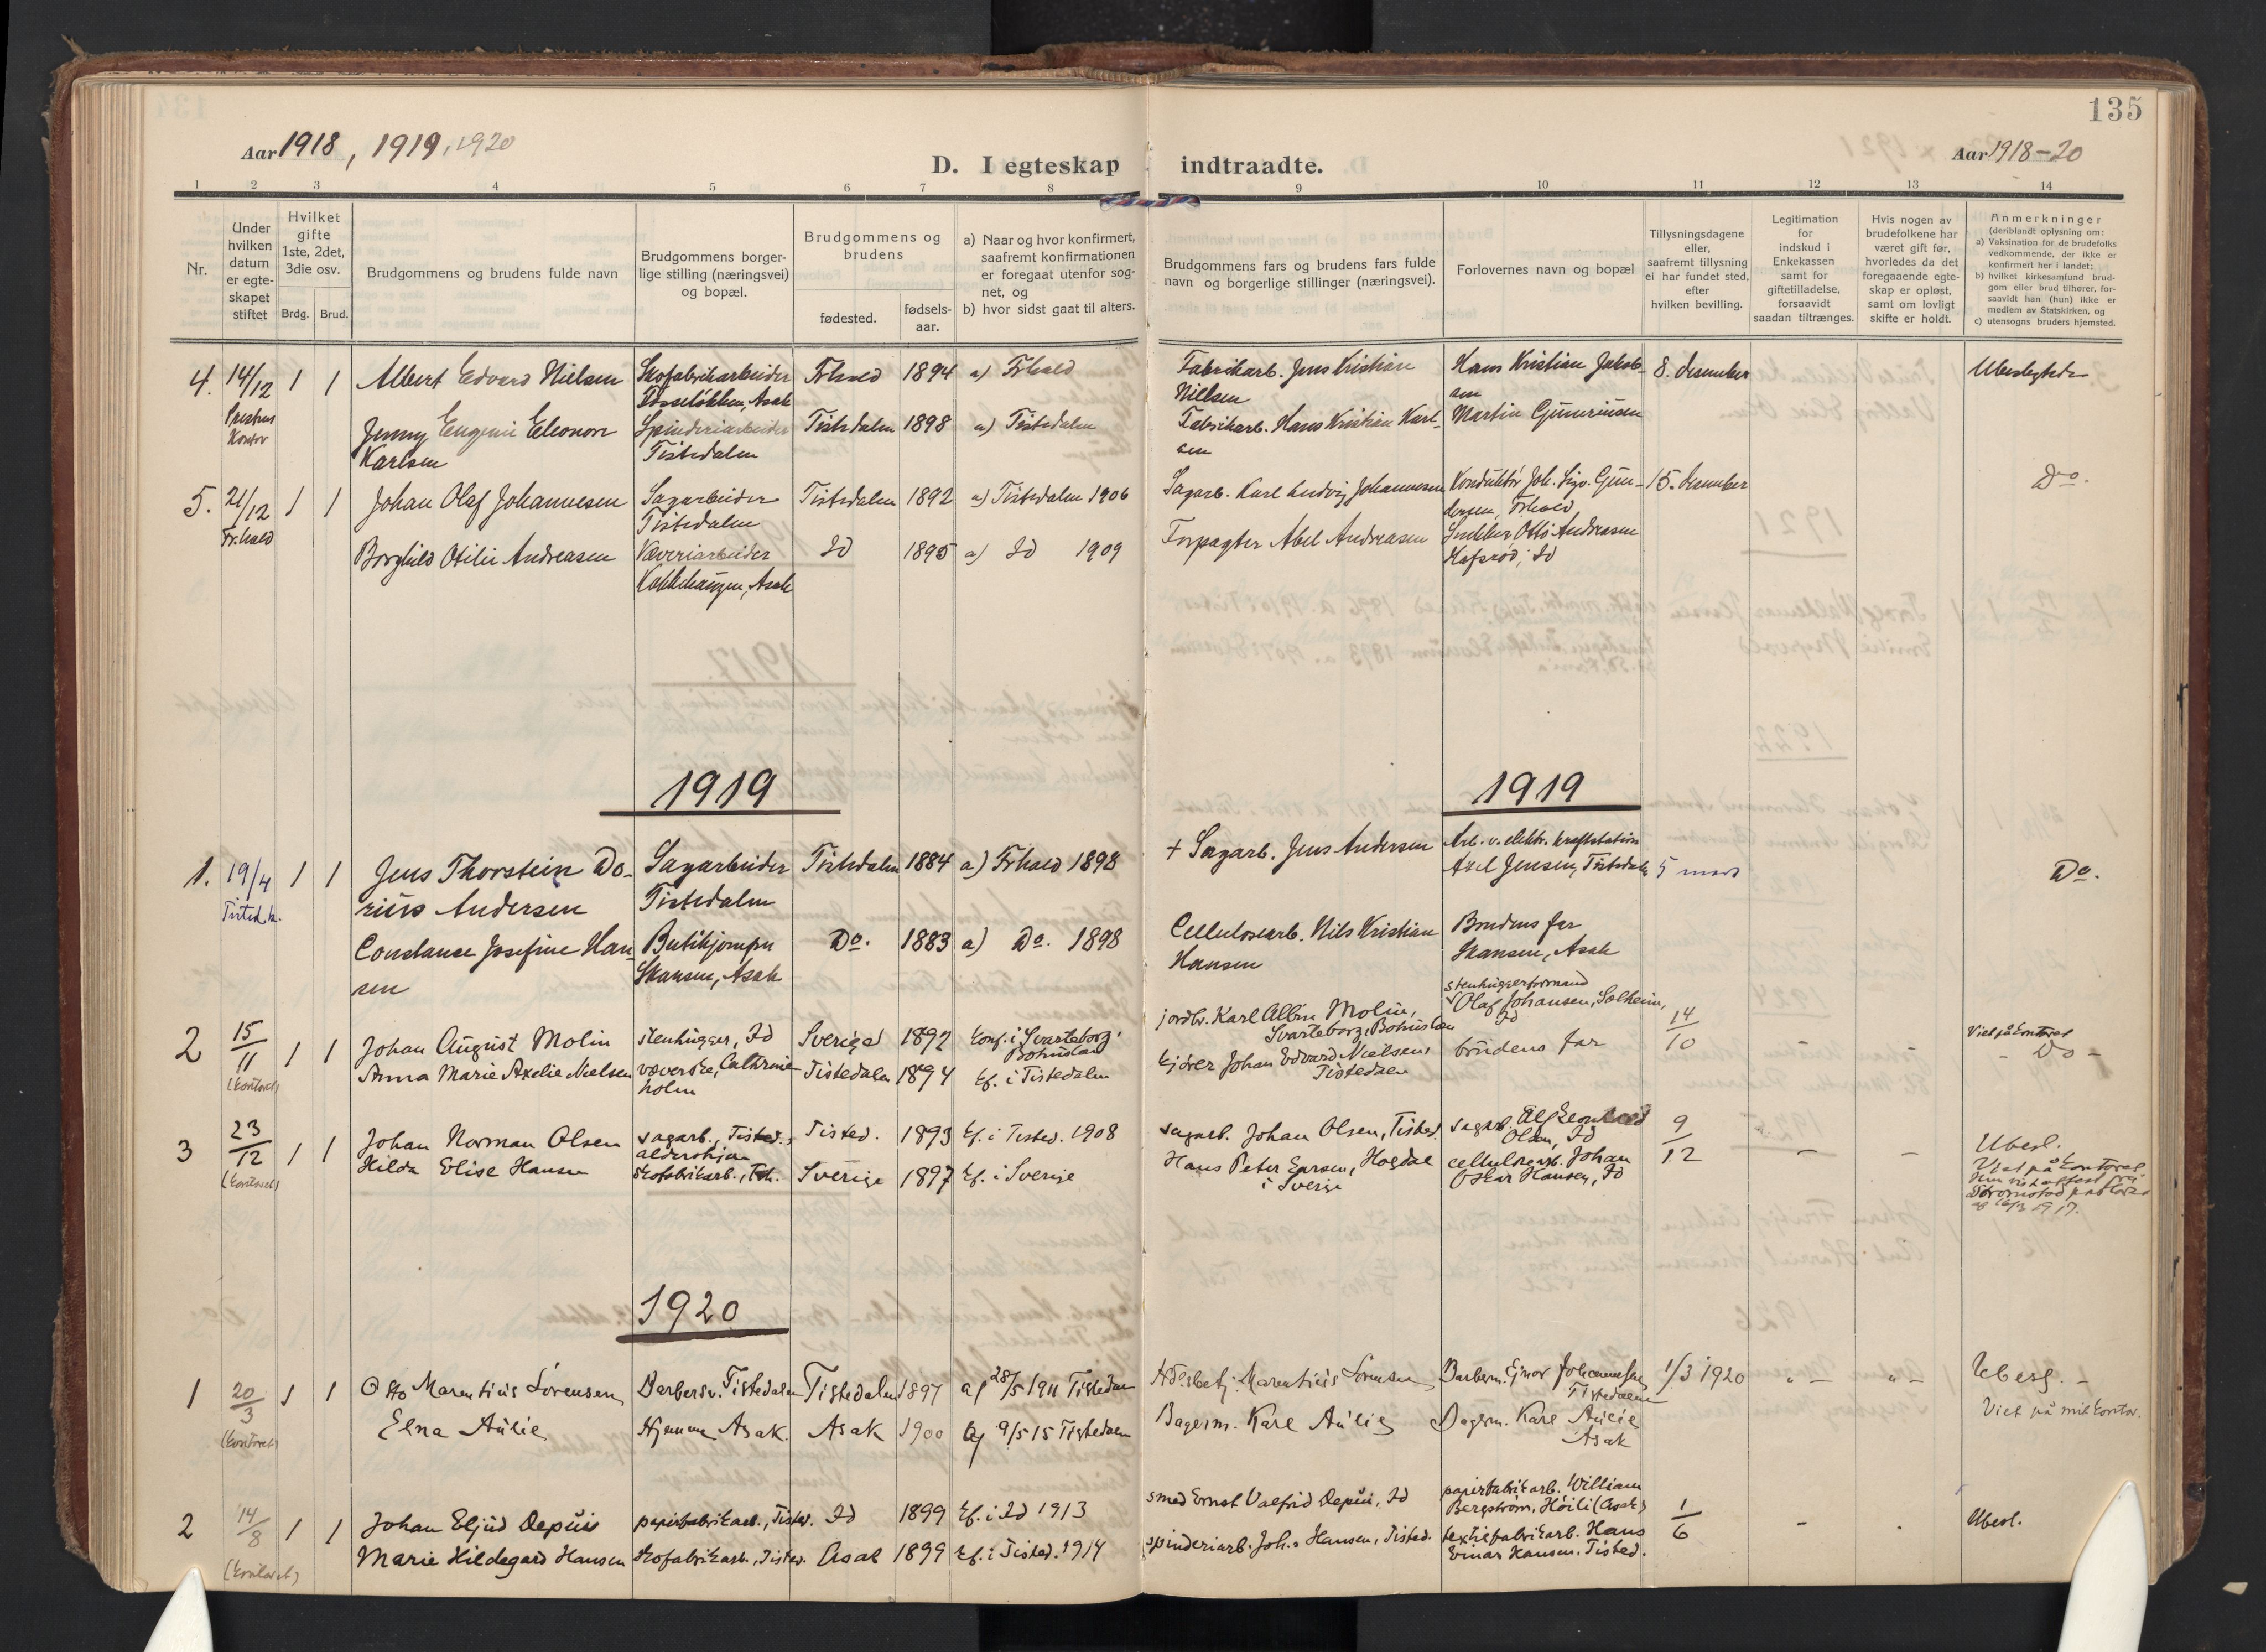 135
Aar 1918, 1919, 1920
D. I egteskap indtraadte.
Aar 1918-20
1 2 3 4 5 6 7 8 9 10 11 12 13 14
Nr.
Under
hvilken
datum
er egte-
skapet
stiftet
Hvilket
gifte
1ste, 2det,
3die osv.
Brdg. Brud.
Brudgommens og brudens fulde navn
Brudgommens borger-
lige stilling (næringsvei)
og bopæl.
Brudgommens og
brudens
fødested.
fødsels-
aar.
a) Naar og hvor konfirmert,
saafremt konfirmationen
er foregaat utenfor sog-
net, og
b) hvor sidst gaat til alters.
Brudgommens fars og brudens fars fulde
navn og borgerlige stillinger (næringsvei).
Forlovernes navn og bopæl
Tillysningsdagene
eller,
saafremt tillysning
ei har fundet sted,
efter
hvilken bevilling.
Legitimation
for
indskud i
Enkekassen
samt for
giftetilladelse,
forsaavidt
saadan tiltrænges.
Hvis nogen av
brudefolkene har
været gift før,
hvorledes da det
foregaaende egte-
skap er opløst,
samt om lovligt
skifte er holdt.
Anmerkninger
(deriblandt oplysning om:
a) Vaksination for de brudefolks
vedkommende, der ikke er
konfirmert her i landet;
b) hvilket kirkesamfund brud-
gom eller brud tilhører, for-
saavidt han (hun) ikke er
medlem av Statskirken, og
c) utensogns bruders hjemsted.
4. 14/12 1 1 Albert Edvard Nielsen Skofabrikarbeider Frhald 1894 a) Frhald Fabrikarb. Jens Kristian Hans Kristian Jakob- 8. desember Ubeslegtede
Asak Nielsen sen
Kontor Jenny Eugenie Eleonore Spinderiarbeider Tistedalen 1898 a) Tistedalen Fabrikarb. Hans Kristian Karl- Martin Guneriusen
Karlsen Tistedalen sen
5. 21/12 1 1 Johan Olaf Johannesen Sagarbeider Tistedalen 1892 a) Tistedalen 1906 Sagarb. Karl Ludvig Johannesen Konduktør Joh. Sigv. Gun- 15. desember Do.
Fr.hald Tistedalen dersen, Frhald
Borghild Otilie Andreasen Væveriarbeider Id 1895 a) Id 1909 Forpagter Abel Andreasen Snekker Otto Andreasen
Asak Hafsrød, Id
1919 1919
1. 19/4 1 1 Jens Thorstein Do- Sagarbeider Tistedalen 1884 a) Frhald 1898 + Sagarb. Jens Andersen Arb. v. elektr. kraftstation
Tisted. k. rius Andersen Tistedalen Axel Jensen, Tistedalen 5 mars Do.
Constance Josefine Han- Butikjomfru Do. 1883 a) Do. 1898 Cellulosearb. Nils Kristian Brudens far
sen Skansen, Asak Hansen Skansen, Asak
2 15/11 1 1 Johan August Molin stenhugger, Id Sverige 1892 Konf. i Svarteborg, Bohuslän jordbr. Karl Albin Molin, Svarteborg, Bohuslän stenhuggerformand Olaf Johansen, Solheim, Id 14/10 - - Viet på kontoret - Do -
(kontoret) Anna Marie Axelie Nielsen væverske, Cathrineholm Tistedalen 1894 kf. i Tistedalen kjører Johan Edvard Nielsen, Tistedalen brudens far
3 23/12 1 1 Johan Norman Olsen sagarb., Tisted., Tisted. 1893 kf. i Tisted. 1908 sagarb. Johan Olsen, Tisted. sagarb. Olsen, Id 9/12 - - Ubesl.
(kontoret) Hilda Elise Hansen skofabrikarb., Sverige 1897 kf. i Sverige Hans Peter Hogdal i Sverige cellulosearb. Johan Oskar Hansen, Id Viet på kontoret.
1917.
1920
1 20/3 1 1 Otto Marentius Sørensen Barbersv. Tistedalen Tistedalen 1897 a/ 28/5 1911 Tistedalen Marentius Sørensen Barberm. Ejnar Johannesen Tistedalen 1/3 1920 " - " - Ubesl. -
(kontoret) Elna Aulie Hjemme Asak. Asak 1900 a/ 9/5 15 Tistedalen Bagerm. Karl Aulie Bagerm. Karl Aulie Asak Viet på mit kontor.
2 14/8 1 1 Johan Eljud Depuis papirfabrikarb., Tisted. Id 1899 kf. i Id 1913 smed Ernst Valfrid Depui, Id papirfabrikarb. William Bergstrøm, Høili (Asak) 1/6 - . Ubesl.
(kontoret) Marie Hildegard Hansen skofabrikarb., Tisted. Asak 1899 kf. i Tisted. 1914 spinderiarb. Joh.s Hansen, Tisted. textilfabrikarb. Hans Einar Hansen, Tisted.